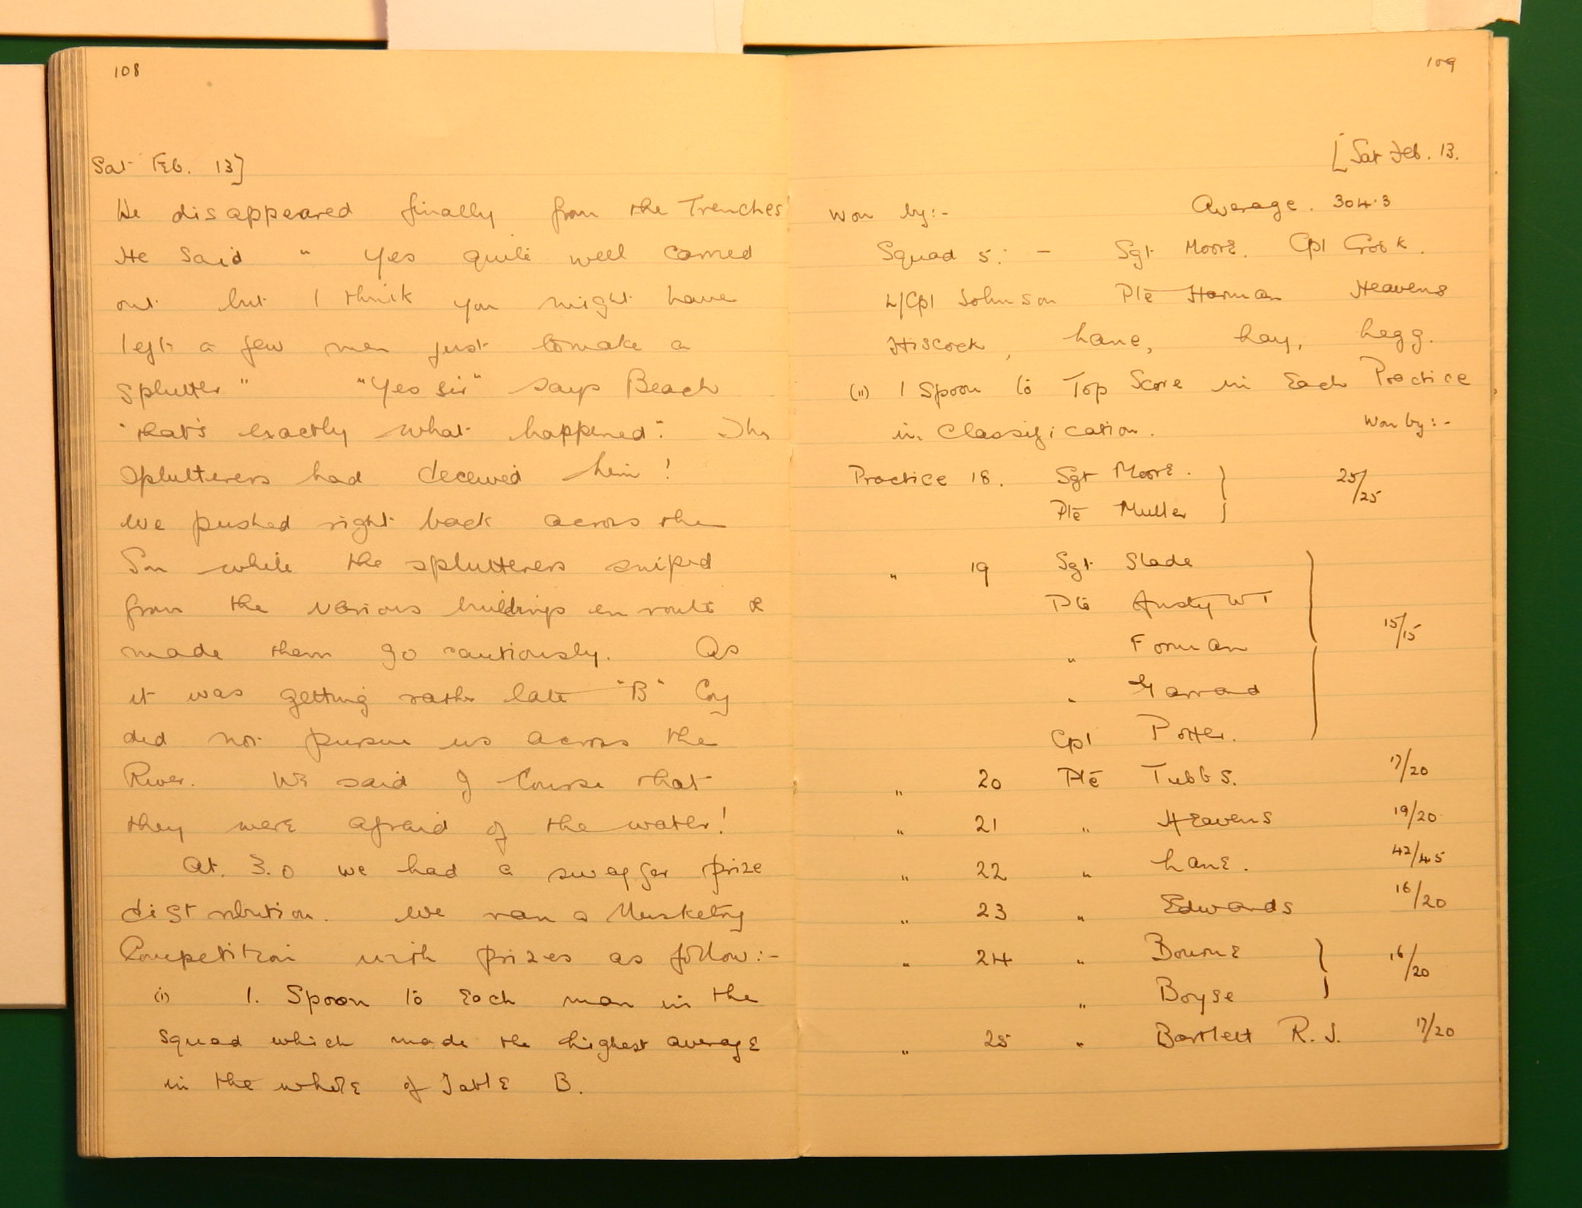 108
Sat Feb. 13]
We disappeared finally from the Trenches
He said " Yes quite well carried
out but I think you might have
left a few men just to make a
splutter" "Yes sir" says Beach
"that's exactly what happened". The
splutterers had deceived him!
We pushed right back across the
Son while the splutterers sniped
from the various buildings en route &
made them go cautiously. As
it was getting rather late "B" Coy
did not pursue us across the
River. We said of Course that
they were afraid of the water!
At. 3.0 we had a swagger prize
distribution. We ran a Musketry
Competition with prizes as follow:-
(i) 1. Spoon to Each man in the
squad which made the highest average
in the whole of Table B.
109
[Sat Feb. 13.
Won by:- Average. 304.3
Squad 5: - Sgt Moore. Cpl Crook.
L/Cpl Johnson Pte Harman Heavens
Hiscock, Lane, Lay, Legg.
(ii) 1 Spoon to Top Score in Each Practice
in Classification. Won by:-
Practice 18. Sgt Moore. 25/25
Pte Muller
" 19 Sgt Slade
Pte Ansty W T
" Forman 15/15
" Garrard
Cpl Potter.
" 20 Pte Tubbs. 17/20
" 21 " Heavens 19/20
" 22 " Lane. 42/45
" 23 " Edwards 16/20
" 24 " Bourne 16/20
" Boyse
" 25 " Bartlett R. J. 17/20